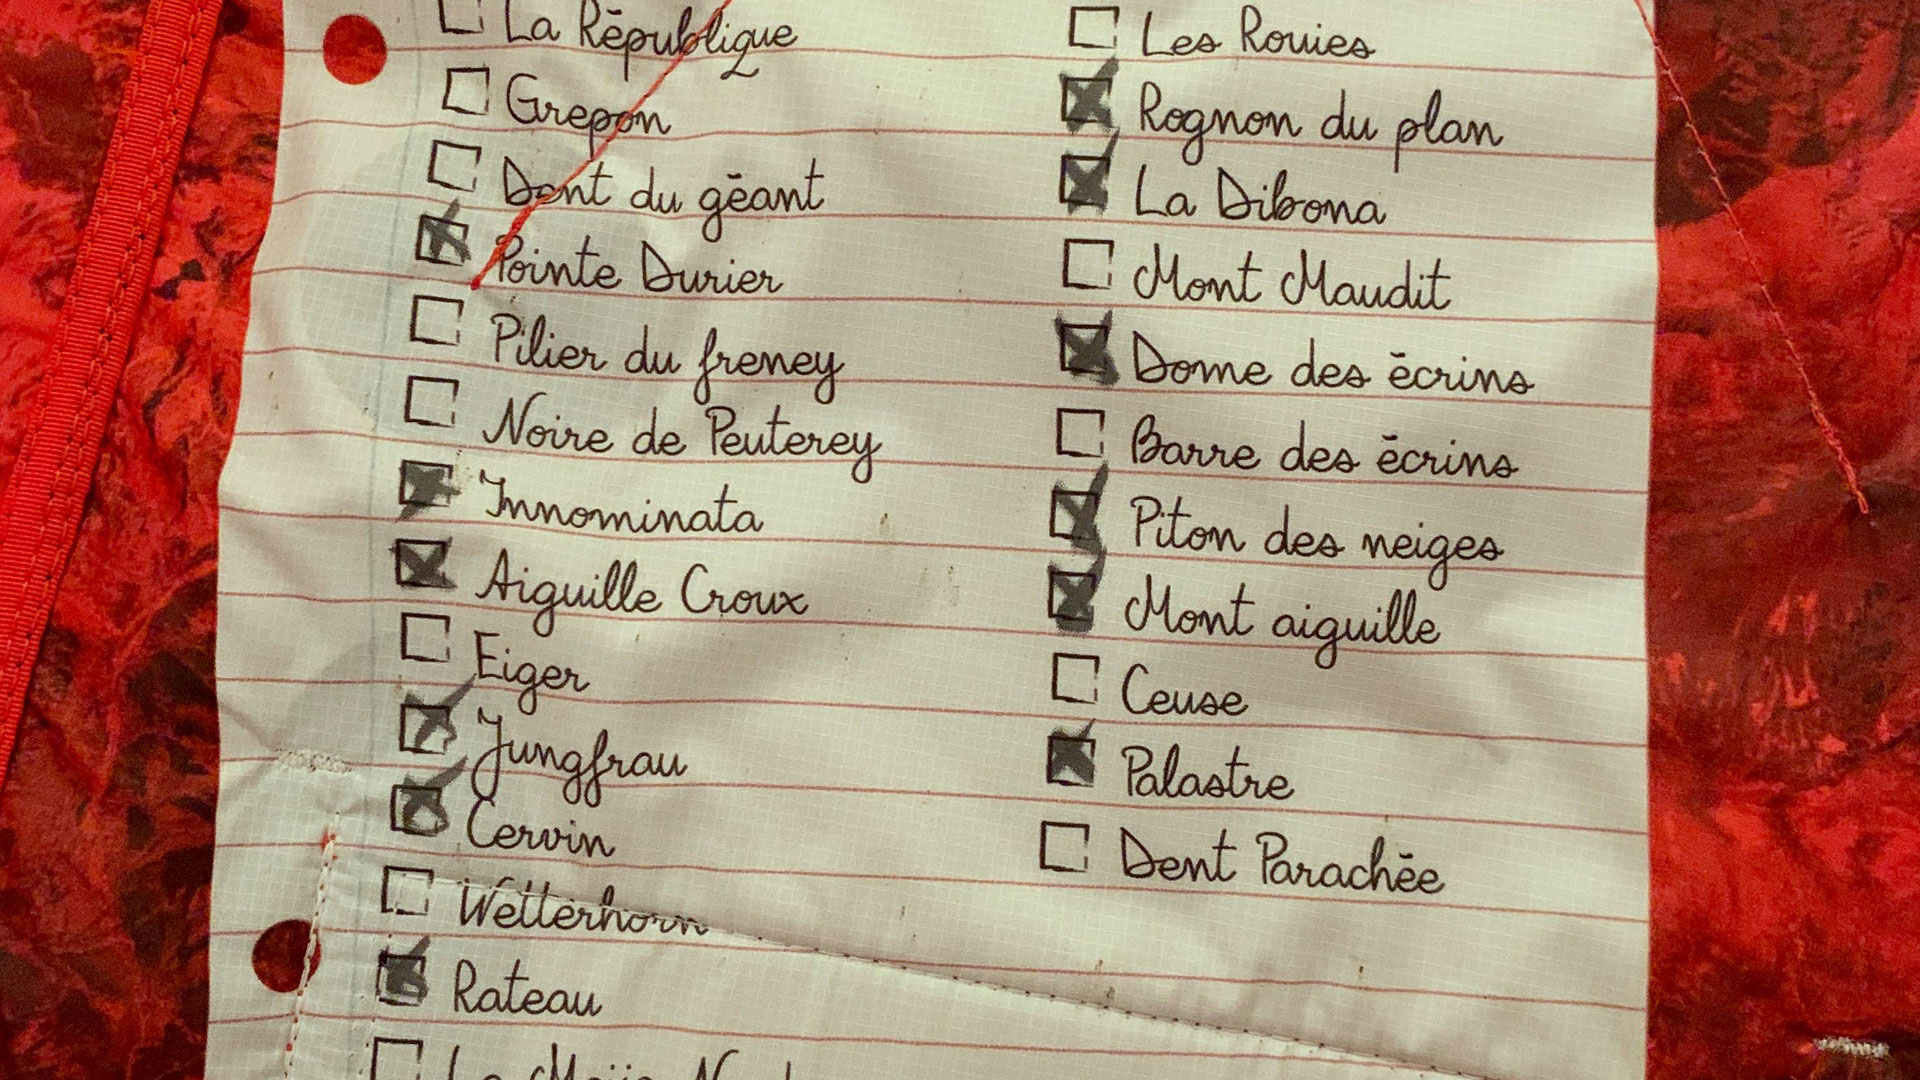 La Rēpublique
Grepon
Dent du gēant
Pointe Durier
Pilier du freney
Noire de Peuterey
Innominata
Aiguille Croux
Eiger
Jungfrau
Cervin
Wetterhorn
Rateau
La Meije
Les Rouies
Rognon du plan
La Dibona
Mont Maudit
Dome des ēcrins
Barre des ēcrins
Piton des neiges
Mont aiguille
Ceuse
Palastre
Dent Parachēe